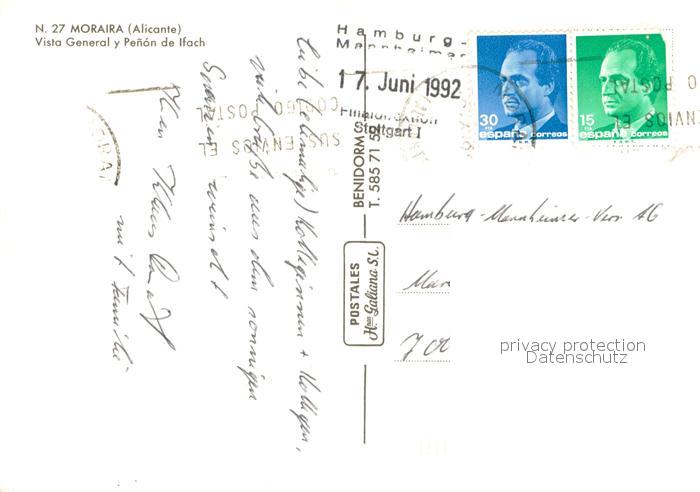 N. 27 MORAIRA (Alicante)
Vista General y Peñón de Ifach
Hamburg-
Mannheimer
17. Juni 1992
Filialdirektion
Stuttgart I
30
PTA
españa correos
15
PTA
españa correos
SUS ENVIOS EL
CODIGO POSTAL
SUS ENVIOS EL
CODIGO POSTAL
Liebe (ehemalige) Kolleginnen + Kollegen,
viele Grüße aus dem sonnigen
Spanien wünscht
Ihr Klaus
mit Familie
BENIDORM
T. 585 71 52
POSTALES
Hnos Galiana S.L.
Hamburg-Mannheimer-Vers. AG
Man
700
privacy protection
Datenschutz